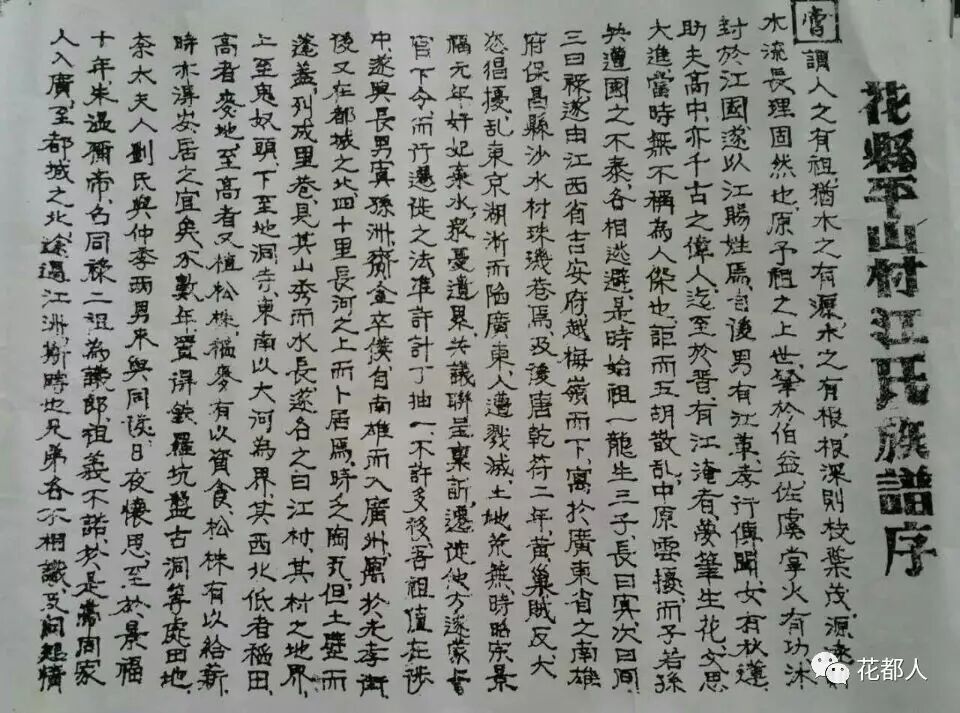 花縣平山村江氏族譜序
嘗謂人之有祖猶水之有源水之有根根深則枝葉茂源
水流長理固然也原予祖之上世肇於伯益佐虞掌火有功沐
封於江國遂以江賜姓焉自後男有江革孝行傳聞女有秋蓮
助夫高中亦千古之偉人迄至於晋有江淹者夢筆生花文思
大進當時無不稱為人傑也詎而五胡散乱中原雲擾而子若孫
共遭國之不泰各相逃避是時始祖一龍生三子長曰寅次曰同
三曰祿遂由江西省吉安府越梅嶺而下寓於廣東省之南雄
府保昌縣沙水村珠璣巷焉及後唐乾符二年黃巢賊反大
恣猖擾乱東京湖淅而陷廣東人遭戮滅土地荒蕪時昭宗景
稱元年奸妃棄水衆憂遺累共議聯呈稟訴遷徙他方遂蒙
官下令而行遷徙之法准許計丁抽一不許多移吾祖值在
中遂與長男寅孫洲齎金卒僕自南雄而入廣州寓於光孝街
後又在都城之北四十里長河之上而卜居焉時乏陶瓦但土壁而
蓬蓋列成里巷見其山秀而水長遂名之曰江村其村之地界
上至鬼奴頭下至地洞寺東南以大河為界其西北低者稻田
高者麥地至高者又植松株稻麥有以資食松株有以給薪
時亦得安居之宜矣不數年置得鉄羅坑盤古洞等處田地
奈太夫人劉氏與仲季两男未與同後日夜懷思至於景福
十年朱温弒帝名同祿二祖為議郎祖義不諾於是帶同家
人入廣至都城之北途過江洲斯時也兄弟各不相識及問起情
花都人